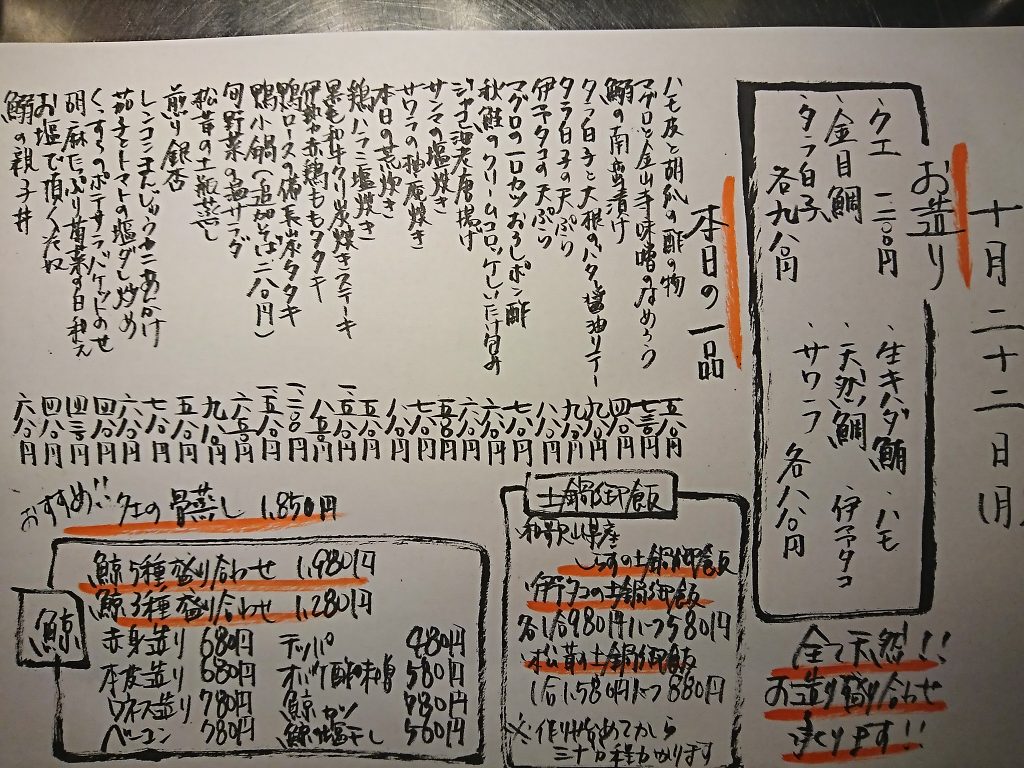 十月二十二日(月)
お造り
・クエ 一二〇〇円
・金目鯛
・タラ白子 各九八〇円
・生キハダ鮪 ・ハモ
・天然鯛 ・伊予タコ
・サワラ 各八八〇円
全て天然!!
お造り盛り合わせ
承ります!!
本日の一品
ハモ皮と胡瓜の酢の物 五八〇円
マグロと金山寺味噌のなめろう 七三〇円
鰯の南蛮漬け 四八〇円
タラ白子と大根のバター醤油ソテー 九八〇円
タラ白子の天ぷら 九八〇円
伊予タコの天ぷら 八八〇円
マグロの一口カツおろしポン酢 七八〇円
秋鮭のクリームコロッケしいたけ包み 六八〇円
ジャコ海老唐揚げ 六八〇円
サンマの塩焼き
サワラの柚庵焼き 七八〇円
本日の荒炊き 八八〇円
鶏ハラミ塩焼き 五八〇円
黒毛和牛クリ炭焼きステーキ
伊勢赤鶏ももタタキ 八八〇円
鴨ロースの備長炭タタキ
鴨小鍋(追加そば二八〇円)
旬野菜の塩サラダ
松茸の土瓶蒸し 九八〇円
煎り銀杏 五八〇円
レンコンまんじゅうカニあんかけ 七八〇円
茄子とトマトの塩ダレ炒め 六八〇円
くんすものポテサラバケットのせ 四八〇円
胡麻たっぷり菊菜の白和え
お塩で頂く冷奴 四八〇円
鰯の親子丼 六八〇円
土鍋御飯
和歌山県産
しらすの土鍋御飯
伊予タコの土鍋御飯
各1合980円ハーフ580円
松茸の土鍋御飯
1合1,580円ハーフ880円
※作り始めてから
三十分程かかります
おすすめ!! クエの骨蒸し 1,850円
鯨
鯨5種盛り合わせ 1,980円
鯨3種盛り合わせ 1,280円
赤身造り 680円 テッパ 480円
本皮造り 680円 オバケ酢味噌 580円
ウネス造り 780円 鯨カツ 780円
ベーコン 780円 鯨塩干し 560円